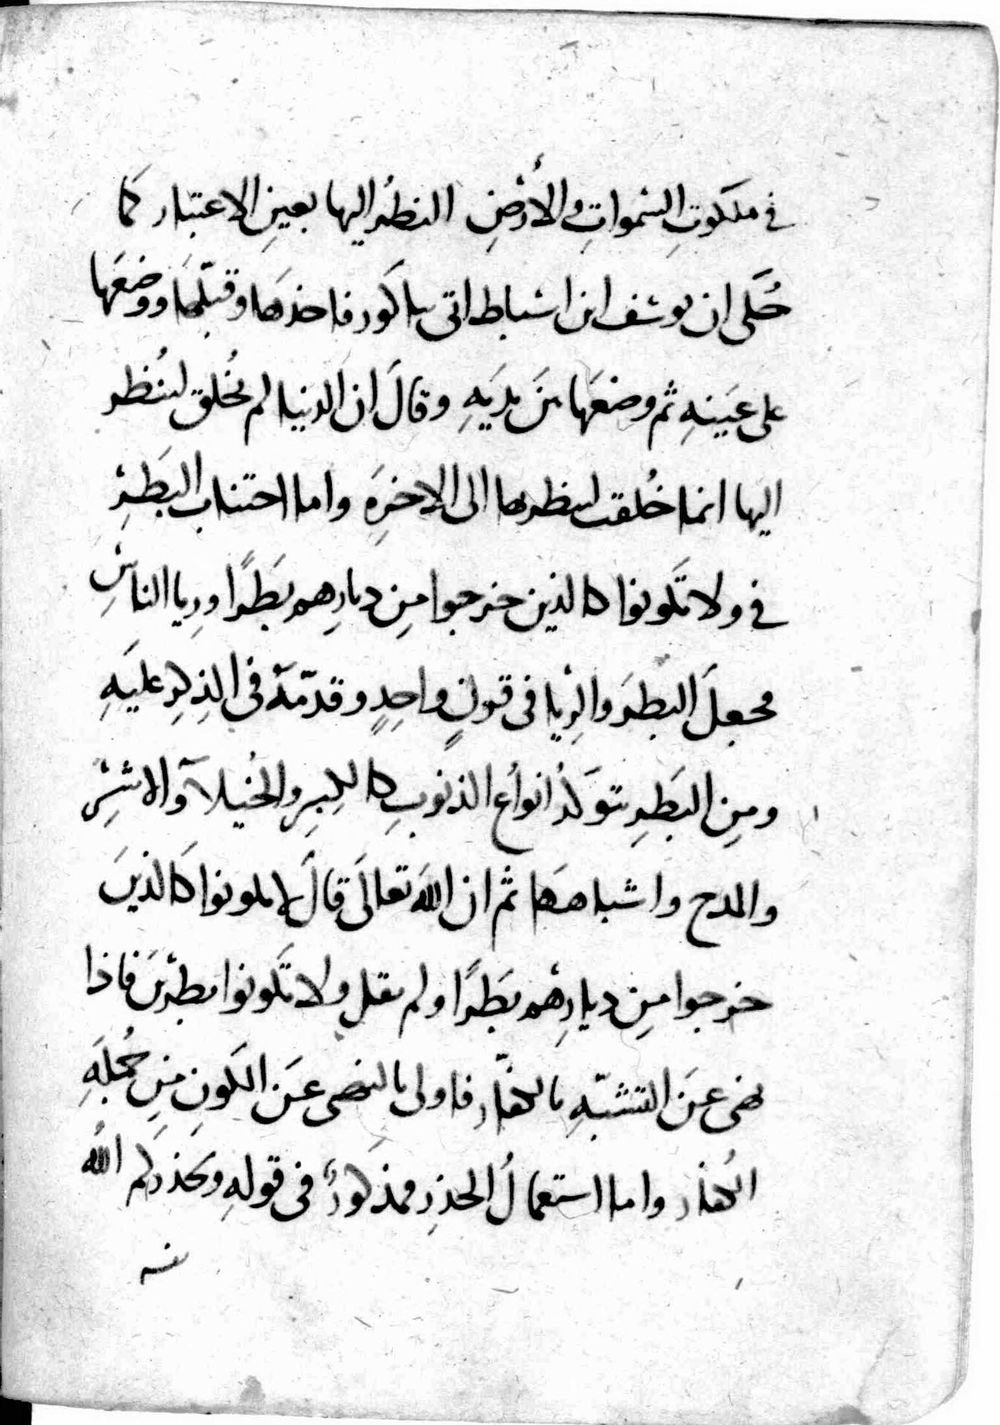 في ملكوتِ السموات والأرْضِ النظرُ اليها بعينِ الاعتبار كما
حُكى ان يوسف ابن اسباط اتى بباكورة فاخذها وقبّلها ووضعَها
على عَينهِ ثم وضعَها بَين يديَهِ وقالَ ان الدنيا لم تخُلق لينُظر
اليها انما خُلقت لينظر بها الى الاخرَة واما اجتناب البَطَرِ
في ولا تكَونوا كالذين خرجوا مِن ديارِهم بَطَرًا ورِيا الناسِ
فجعلَ البَطَرَ والرِيا في قَرنٍ واحِدٍ وقدّمَهُ في الذِكرِ عليَهِ
ومِن البَطَرِ تتوَلدُ أنواُع الذنوبِ كالكِبرِ والخُيلآ والاشَرِ
والمدح واشباهِهَا ثم ان اللهَ تعالَى قالَ لا تكونوا كَالذينَ
خرجوا مِن ديارِهُم بَطَرًا ولم يقل ولا تكَونوا بطرِين فاذا
نهى عَن التشبّهِ بالكفّار فاولى بالنهى عَن الكَونِ مِن جُملَةِ
الكُفار واما استعمالُ الحذِر فمذكورٌ في قولهِ ويحَذركم اللهُ
نفسه